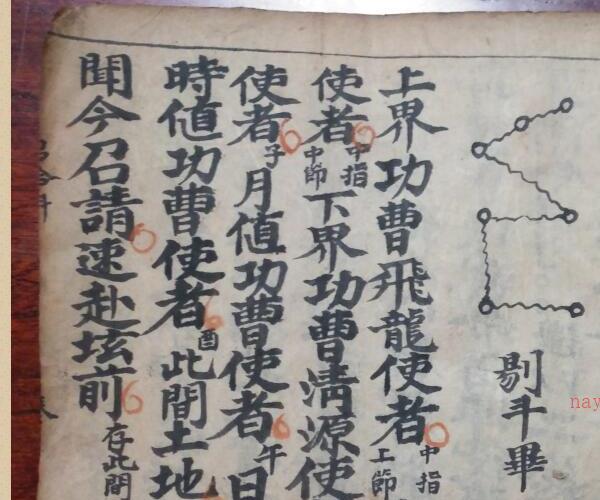 剔斗畢
上界功曹飛龍使者中指上節
使者中指中節下界功曹清源使
使者子月值功曹使者午日
時值功曹使者酉此間土地
聞今召請速赴坛前存此間
nay